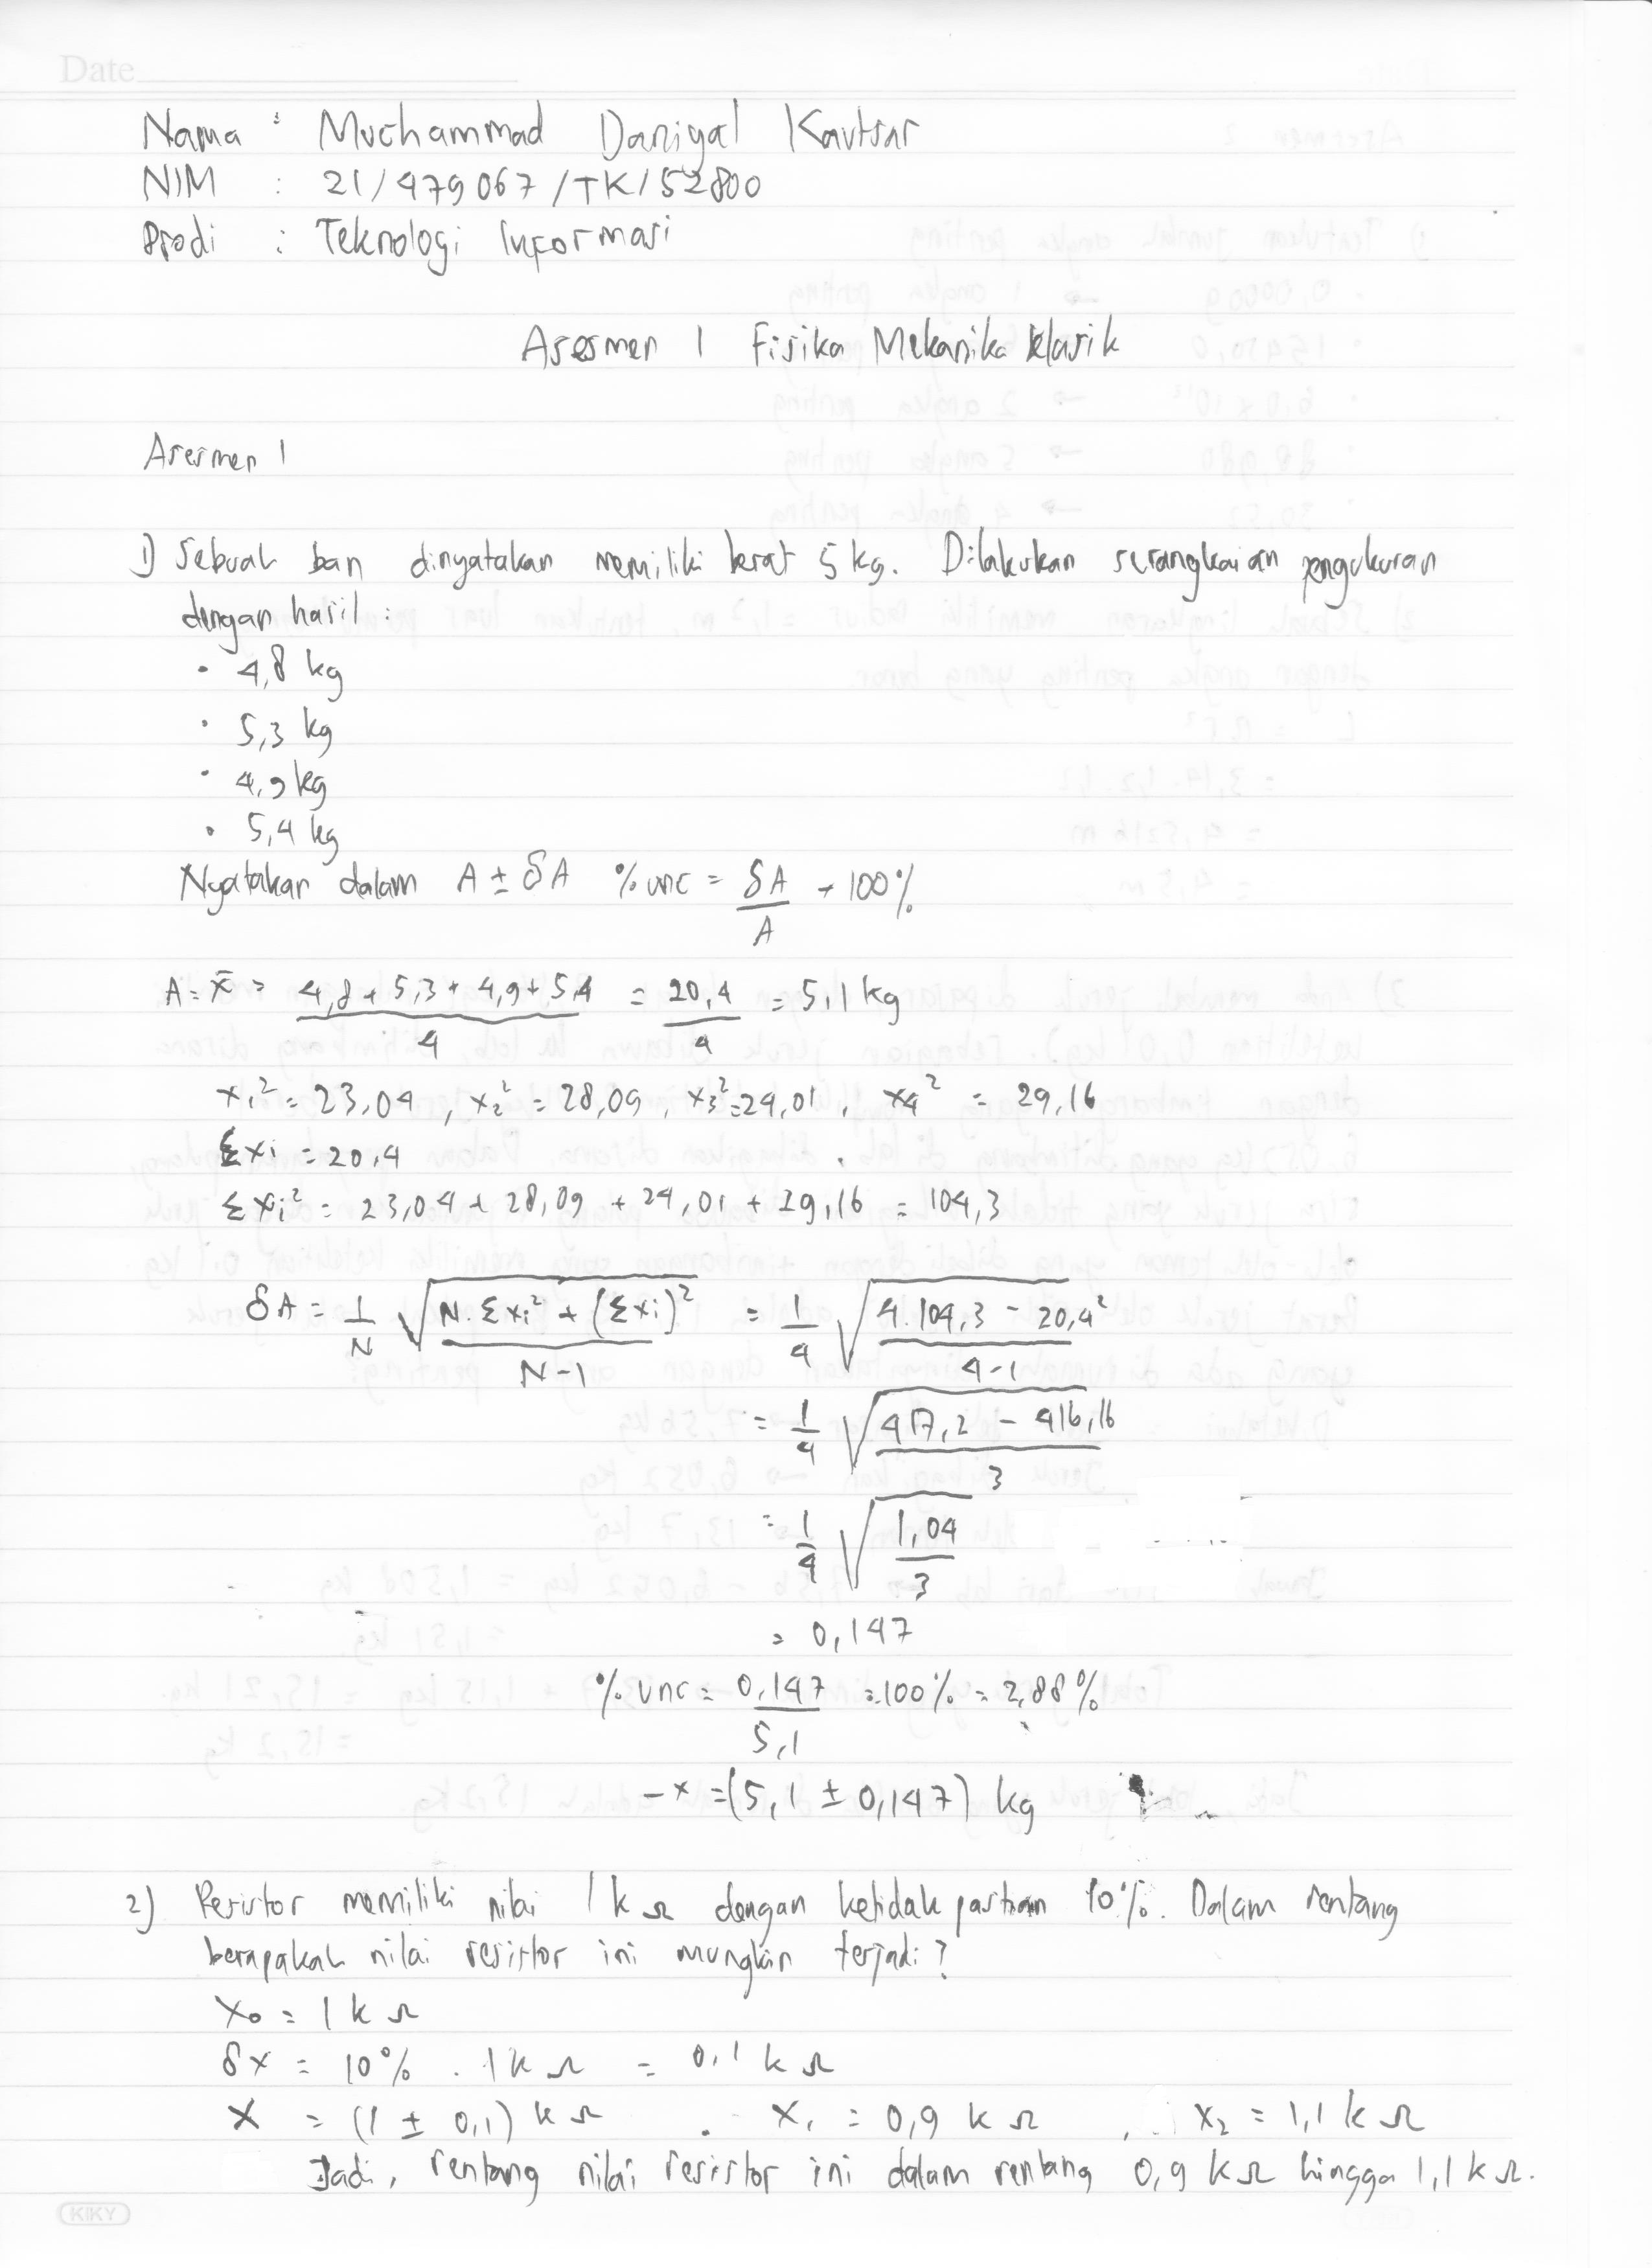 Date
Nama : Muchammad Daniyal Kautsar
NIM : 21/479067/TK/52800
Prodi : Teknologi Informasi
Asesmen 1 Fisika Mekanika Klasik
Asesmen 1
1) Sebuah ban dinyatakan memiliki berat 5 kg. Dilakukan serangkaian pengukuran
dengan hasil :
• 4,8 kg
• 5,3 kg
• 4,9 kg
• 5,4 kg
Nyatakan dalam A ± δA % unc = δA/A × 100%
A = x̄ = (4,8 + 5,3 + 4,9 + 5,4)/4 = 20,4/4 = 5,1 kg
x₁² = 23,04 , x₂² = 28,09 , x₃² = 24,01 , x₄² = 29,16
Σxi = 20,4
Σxi² = 23,04 + 28,09 + 24,01 + 29,16 = 104,3
δA = 1/N √((N. Σxi² + (Σxi)²)/(N-1)) = 1/4 √((4.104,3 - 20,4²)/(4-1))
= 1/4 √((417,2 - 416,16)/3)
= 1/4 √(1,04/3)
= 0,147
% unc = 0,147/5,1 = 100% = 2,88%
- x = (5,1 ± 0,147) kg
2) Resistor memiliki nilai 1 k Ω dengan ketidak pastian 10%. Dalam rentang
berapakah nilai resistor ini mungkin terjadi?
X₀ = 1 k Ω
δx = 10% . 1k Ω = 0,1 k Ω
X = (1 ± 0,1) k Ω . X₁ = 0,9 k Ω , X₂ = 1,1 k Ω
Jadi, rentang nilai resistor ini dalam rentang 0,9 k Ω hingga 1,1 k Ω.
KIKY